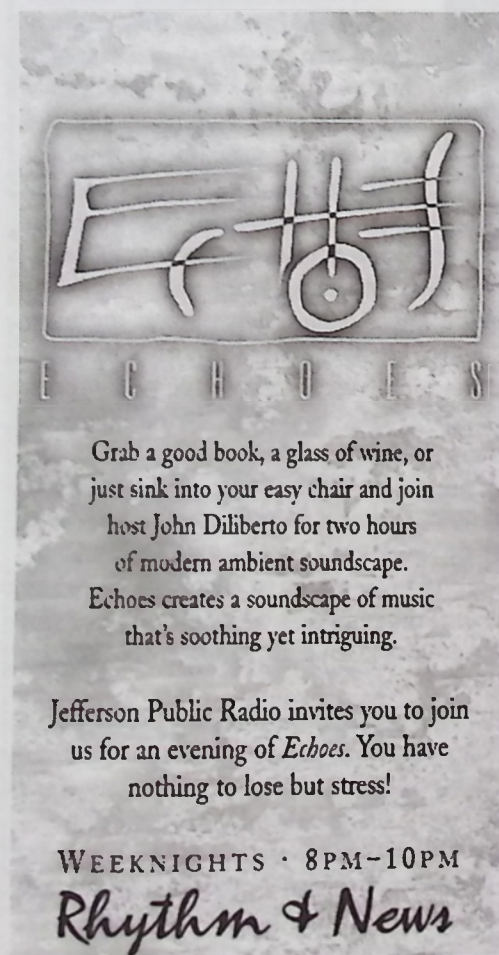 ECHOES
ECHOES
Grab a good book, a glass of wine, or
just sink into your easy chair and join
host John Diliberto for two hours
of modern ambient soundscape.
Echoes creates a soundscape of music
that's soothing yet intriguing.
Jefferson Public Radio invites you to join
us for an evening of Echoes. You have
nothing to lose but stress!
WEEKNIGHTS · 8PM-10PM
Rhythm & News